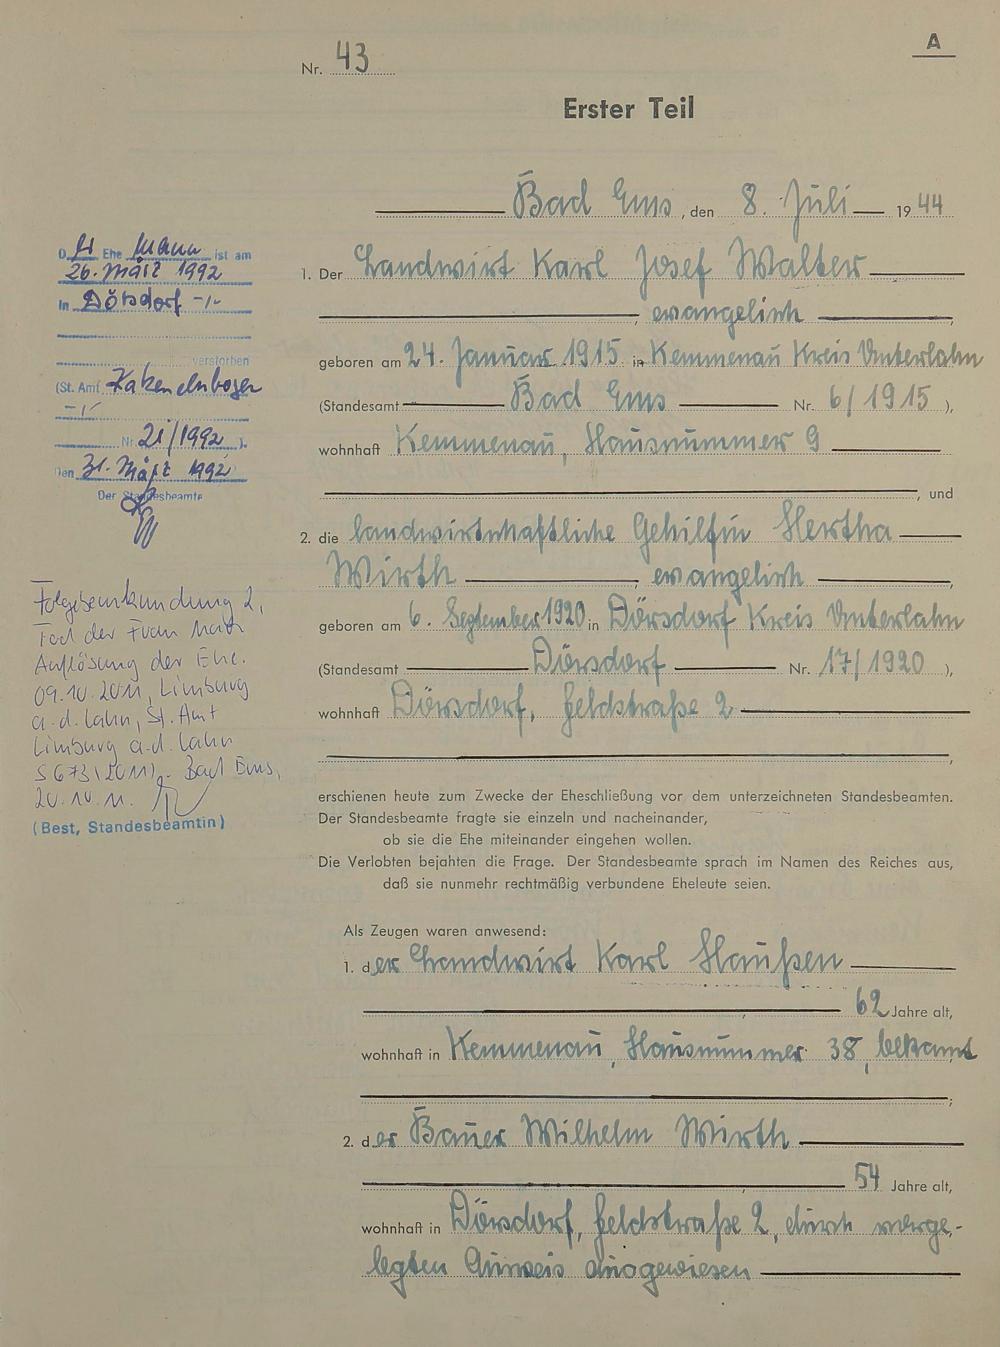 A
Nr. 43
Erster Teil
Bad Ems, den 8. Juli 1944
1. Der Landwirt Karl Josef Walter
, evangelisch ,
geboren am 24. Januar 1915 in Kemmenau Kreis Unterlahn
(Standesamt Bad Ems Nr. 6/1915 ),
wohnhaft Kemmenau, Hausnummer 9
, und
2. die landwirtschaftliche Gehilfin Hertha
Wirth , evangelisch ,
geboren am 6. September 1920 in Dörsdorf Kreis Unterlahn
(Standesamt Dörsdorf Nr. 17/1920 ),
wohnhaft Dörsdorf, Feldstraße 2
,
erschienen heute zum Zwecke der Eheschließung vor dem unterzeichneten Standesbeamten.
Der Standesbeamte fragte sie einzeln und nacheinander,
ob sie die Ehe miteinander eingehen wollen.
Die Verlobten bejahten die Frage. Der Standesbeamte sprach im Namen des Reiches aus,
daß sie nunmehr rechtmäßig verbundene Eheleute seien.
Als Zeugen waren anwesend:
1. der Landwirt Karl Haußen
, 62 Jahre alt,
wohnhaft in Kemmenau, Hausnummer 38, bekannt
;
2. der Bauer Wilhelm Wirth
, 54 Jahre alt,
wohnhaft in Dörsdorf, Feldstraße 2, durch vorge-
legten Ausweis ausgewiesen
D er Ehe mann ist am
26. März 1992
in Dörsdorf -/-
verstorben
(St. Amt Katzenelnbogen
-/-
Nr. 21/1992 ).
Den 31. März 1992
Der Standesbeamte
Folgebeurkundung 2,
Tod der Frau nach
Auflösung der Ehe.
09.10.2011, Limburg
a.d. Lahn, St. Amt
Limburg a.d. Lahn
S 673/2011). Bad Ems,
20.10.11.
(Best, Standesbeamtin)